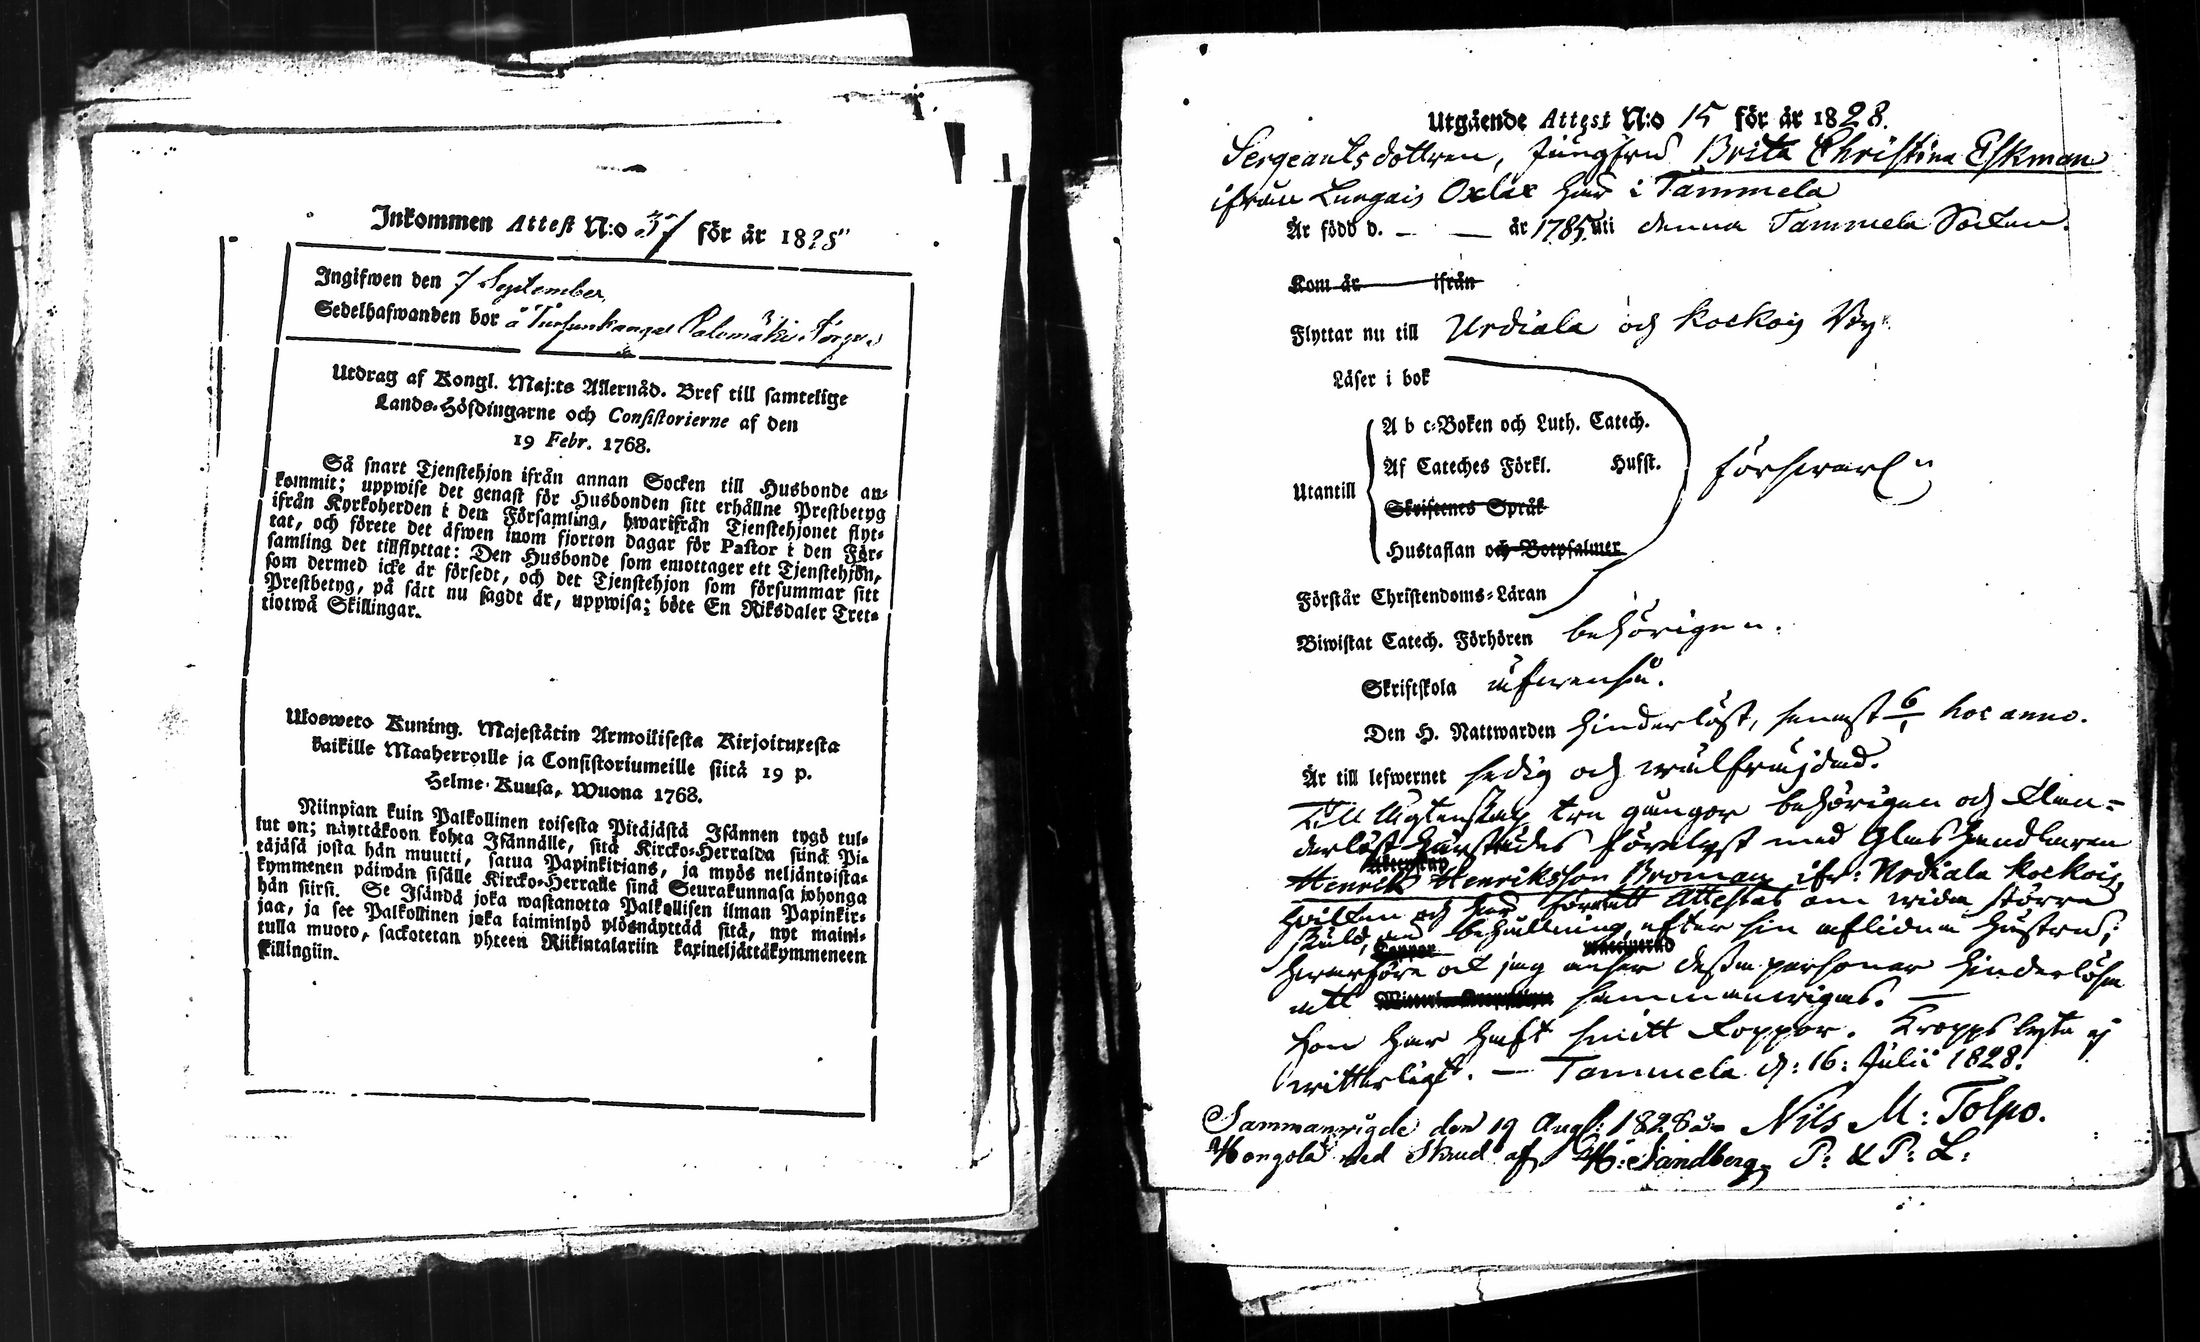 Inkommen Attest N:o 37 för år 1828
Ingifwen den 7 September
Sedelhafwanden bor å Palomäki Torp
Utdrag af Kongl. Maj:ts Allernåd. Bref till samtelige
Lands-Höfdingarne och Consistorierne af den
19 Febr. 1768.
Så snart Tjenstehjon ifrån annan Socken till Husbonde an-
kommit; uppwise det genast för Husbonden sitt erhållne Prestbetyg
ifrån Kyrkoherden i den Församling, hwarifrån Tjenstehjonet flyt-
tat, och förete det äfwen inom fjorton dagar för Pastor i den För-
samling det tillflyttat: Den Husbonde som emottager ett Tjenstehjon,
som dermed icke är försedt, och det Tjenstehjon som försummar sitt
Prestbetyg, på sätt nu sagdt är, uppwisa; böte En Riksdaler Tret-
tiotwå Skillingar.
Ulosweto Kuning. Majestätin Armollisesta Kirjoituxesta
kaikille Maaherroille ja Consistoriumeille siitä 19 p.
Helme-Kuusa, Wuona 1768.
Niinpian kuin Palkollinen toisesta Pitäjästä Isännen tygö tul-
lut on; näyttäkoon kohta Isännälle, sitä Kircko-Herralda siinä Pi-
täjäsä josta hän muutti, saatua Papinkirjans, ja myös neljäntoista-
kymmenen päiwän sisälle Kircko-Herralle siinä Seurakunnasa johonga
hän siirsi. Se Isändä joka wastanotta Palkollisen ilman Papinkir-
jaa, ja see Palkollinen joka laiminlyö ylösnäyttää sitä, nyt maini-
tulla muoto, sackotetan yhteen Riikintalariin kaxineljättäkymmeneen
killingiin.
Utgående Attest N:o 15 för år 1828.
Sergeantsdottren, Jungfru Brita Christina Eskman
ifrån Lungois Oxlax här i Tammela
År född d. — — år 1785 uti denna Tammela Socken.
Kom år ifrån
Flyttar nu till Urdiala och Kockois By
Läser i bok
A b c-Boken och Luth. Catech.
Af Cateches Förkl. Husst.
Utantill
försvarl:n
Skriftenes Språk
Hustaflan och Botpsalmer
Förstår Christendoms-Läran
Biwistat Catech. Förhören behörigen.
Skriftskola äfwenså.
Den H. Nattwarden hinderlöst, senast 6/1 hoc anno.
Är till lefwernet sedig och wälfräjdad.
Till Ägtenskap tre gånger behörigen och klan-
derlöst härstädes förelyst med Glashandlaren
Henrik Henriksson Broman ifr: Urdiala Kockois,
hvilken och har förett Attestas om wida större
skuld, än behållning, efter sin aflidna hustru;
hwarföre ock jag anser dessa personer hinderlösa
att sammanwigas. —
Hon har haft smitt koppor. Kroppslyte ej
witterligt. — Tammela d: 16: Julii 1828.
Nils M: Tolpo.
Sammanwigde den 19 Aug: 1828 å
Hongola med Skrud af M: Sandberg P: & P: L: